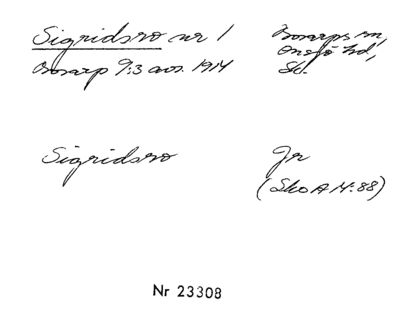 Sigridsro nr 1
Bosarps sn,
Onsjö hd,
Sk.
Bosarp 9:3 avs. 1914
Sigridsro
Jr
(Sko A 14:88)
Nr 23308